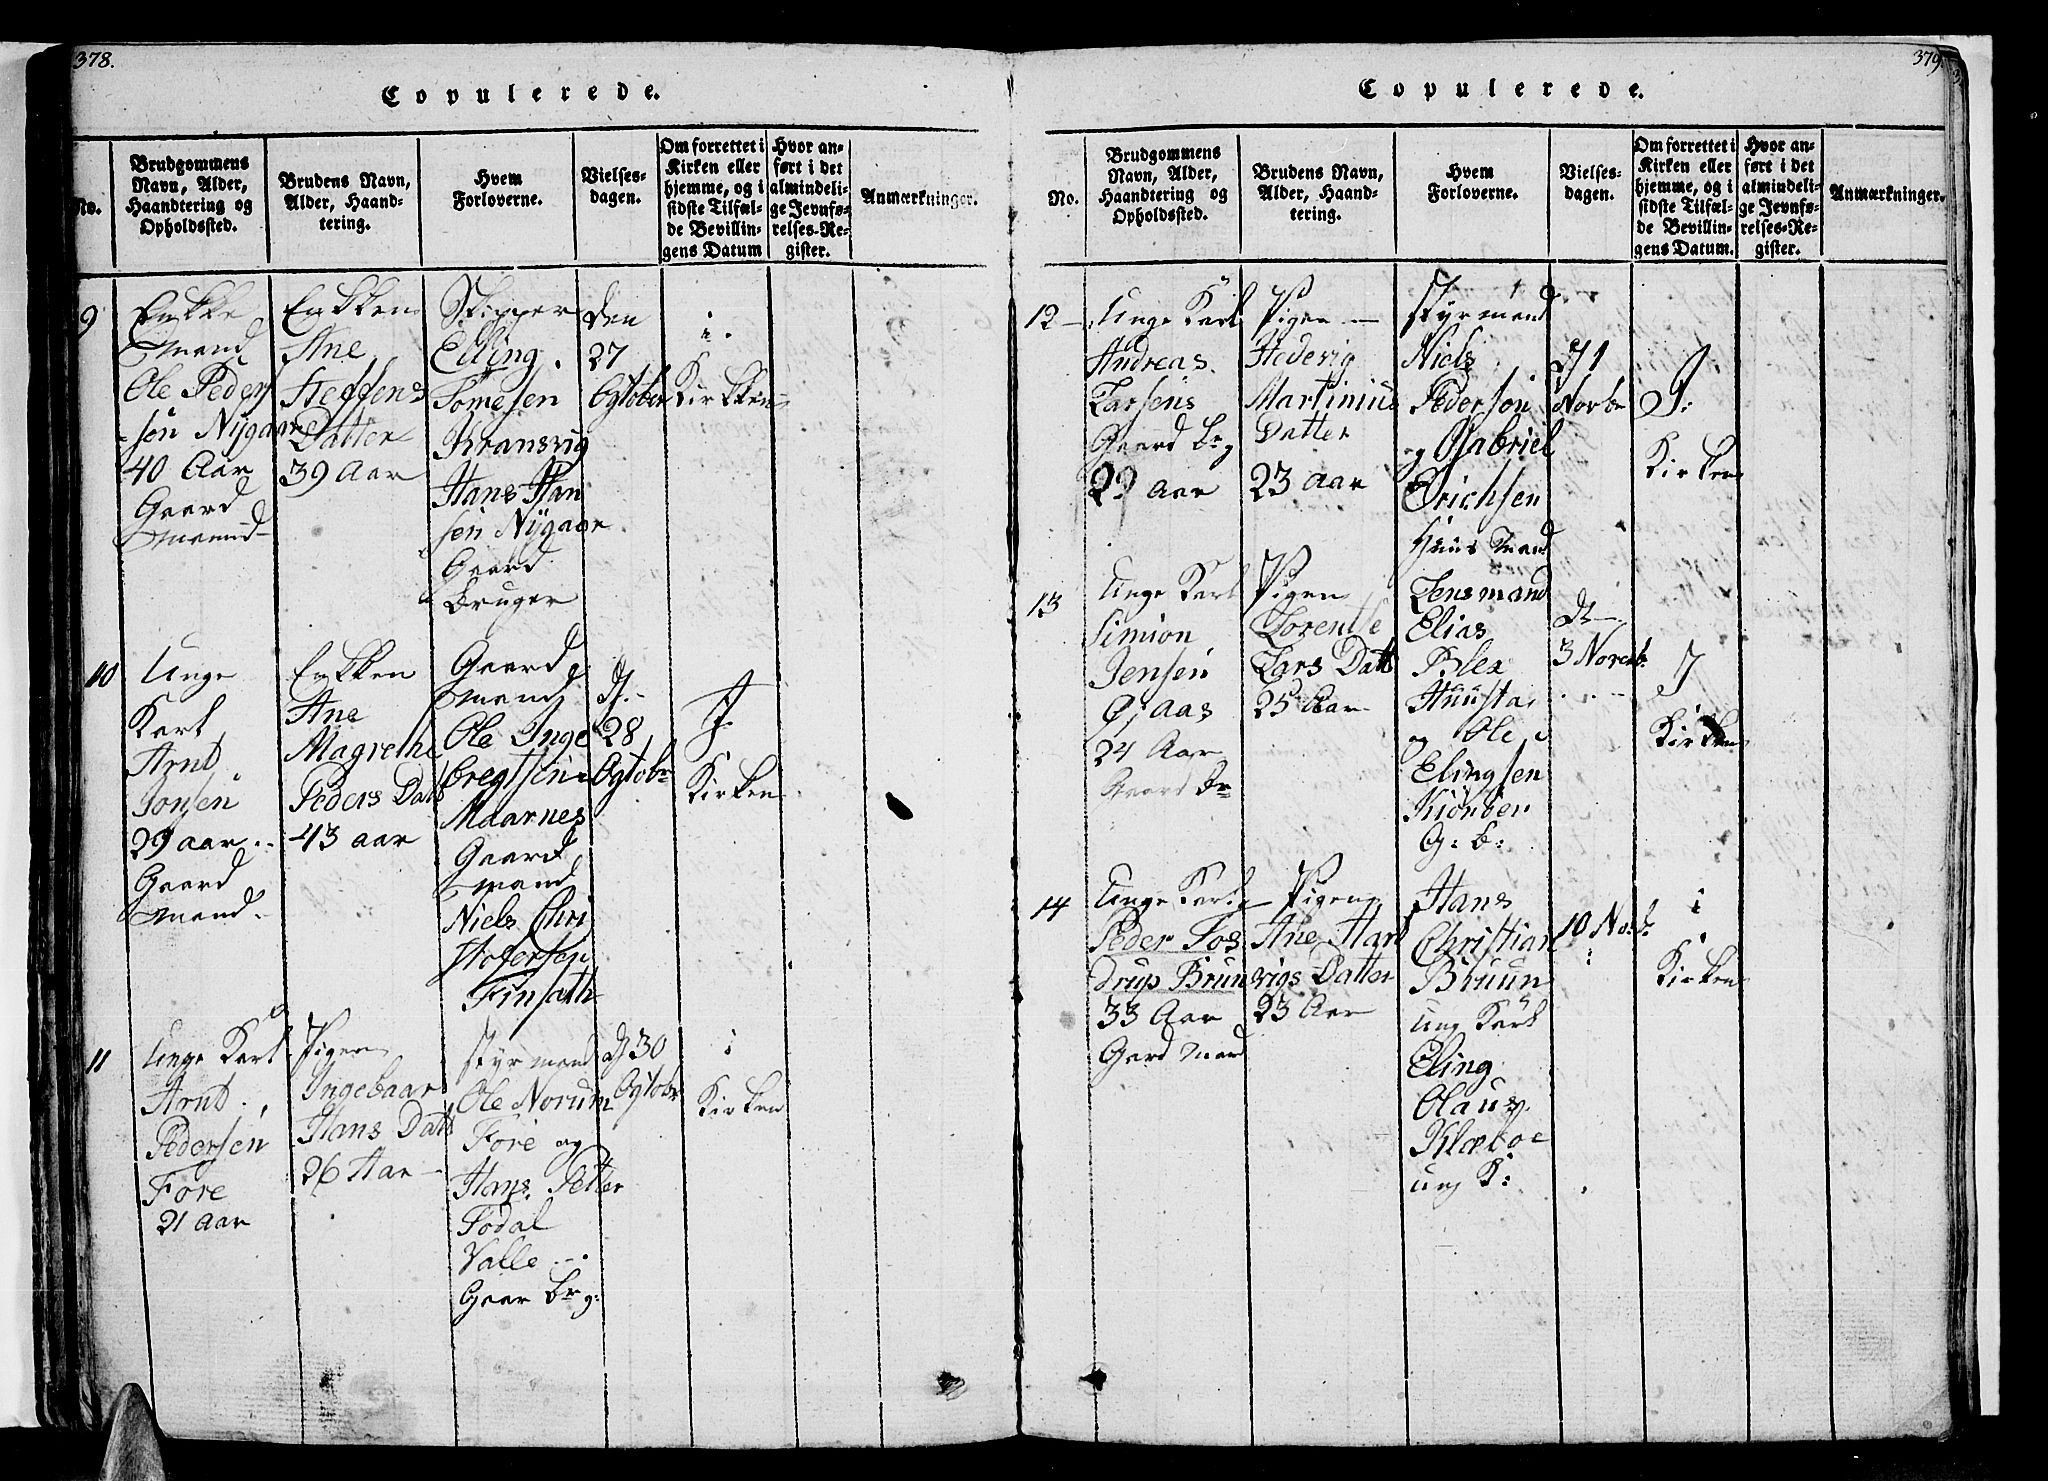 378.
Copulerede.
No.
Brudgommens
Navn, Alder,
Haandtering og
Opholdssted.
Brudens Navn,
Alder, Haand-
tering.
Hvem
Forloverne.
Vielses-
dagen.
Om forrettet i
Kirken eller
hjemme, og i
sidste Tilfæl-
de Bevillin-
gens Datum
Hvor an-
ført i det
almindeli-
ge Jevnfø-
relses-Re-
gister.
Anmærkninger.
9
Enkke
Mand
Ole Peder
søn Nÿgaard
40 Aar
Gaard
mand
Enkken
Ane
Steffens
Datter
39 Aar
Skipper
Elling
Tomesen
Kransvig
Hans Han
sen Nÿgaar
Gaard
bruger
den
27
Ogtober
i
Kirkken
10
Unge
Karl
Arnt
Jonsen
29 aar
Gaard
mand
Enkken
Ane
Magrethe
Peders Datt
43 aar
Gaard
mand
Ole Inge
bregtsen
Maarnes
Gaard
mand
Niels Chri
stofersen
Finsæth
d.
28
Ogtobr
J
Kirken
11
Unge Karl
Arnt
Pedersen
Fore
21 aar
Pigen
Ingebaar
Hans Datt
26 Aar
Styrmand
Ole Norum
Fore og
Hans Petter
Fodal
Valle
Gaar br g:
d 30
Ogtobr
i
Kirken
379.
Copulerede.
No.
Brudgommens
Navn, Alder,
Haandtering og
Opholdssted.
Brudens Navn,
Alder, Haand-
tering.
Hvem
Forloverne.
Vielses-
dagen.
Om forrettet i
Kirken eller
hjemme, og i
sidste Tilfæl-
de Bevillin-
gens Datum.
Hvor an-
ført i det
almindeli-
ge Jevnfø-
relses-Re-
gister.
Anmærkninger.
12
Unge Karl
Andreas
Larsens
Gaard br g
29 aar
Pigen
Hedevig
Martinius
Datter
23 aar
Styrmand
Niels
Pedersøn
og Gabriel
Erichsen
Huus Mand
d 1
Novbr
J:
Kirken
13
Unge Karl
Simion
Jensen
Øjaas
24 Aar
Gaard Br
Pigen
Lorentse
Lars Datt
25 Aar
Lensmand
Elias
Blex
Huusta
og Ole
Elingsen
Kiönben
G: b:
d
3 Novemb:
J
Kirken
14
Unge Karl
Peder Tos
drup Bruun
33 Aar
Gard Mand
Pigen
Ane Hart
vigs Datter
23 Aar
Hans
Christian
Bruun
ung Karl
Eling
Olaus
Klæboe
ung K:
10 Nov:
i
Kirken